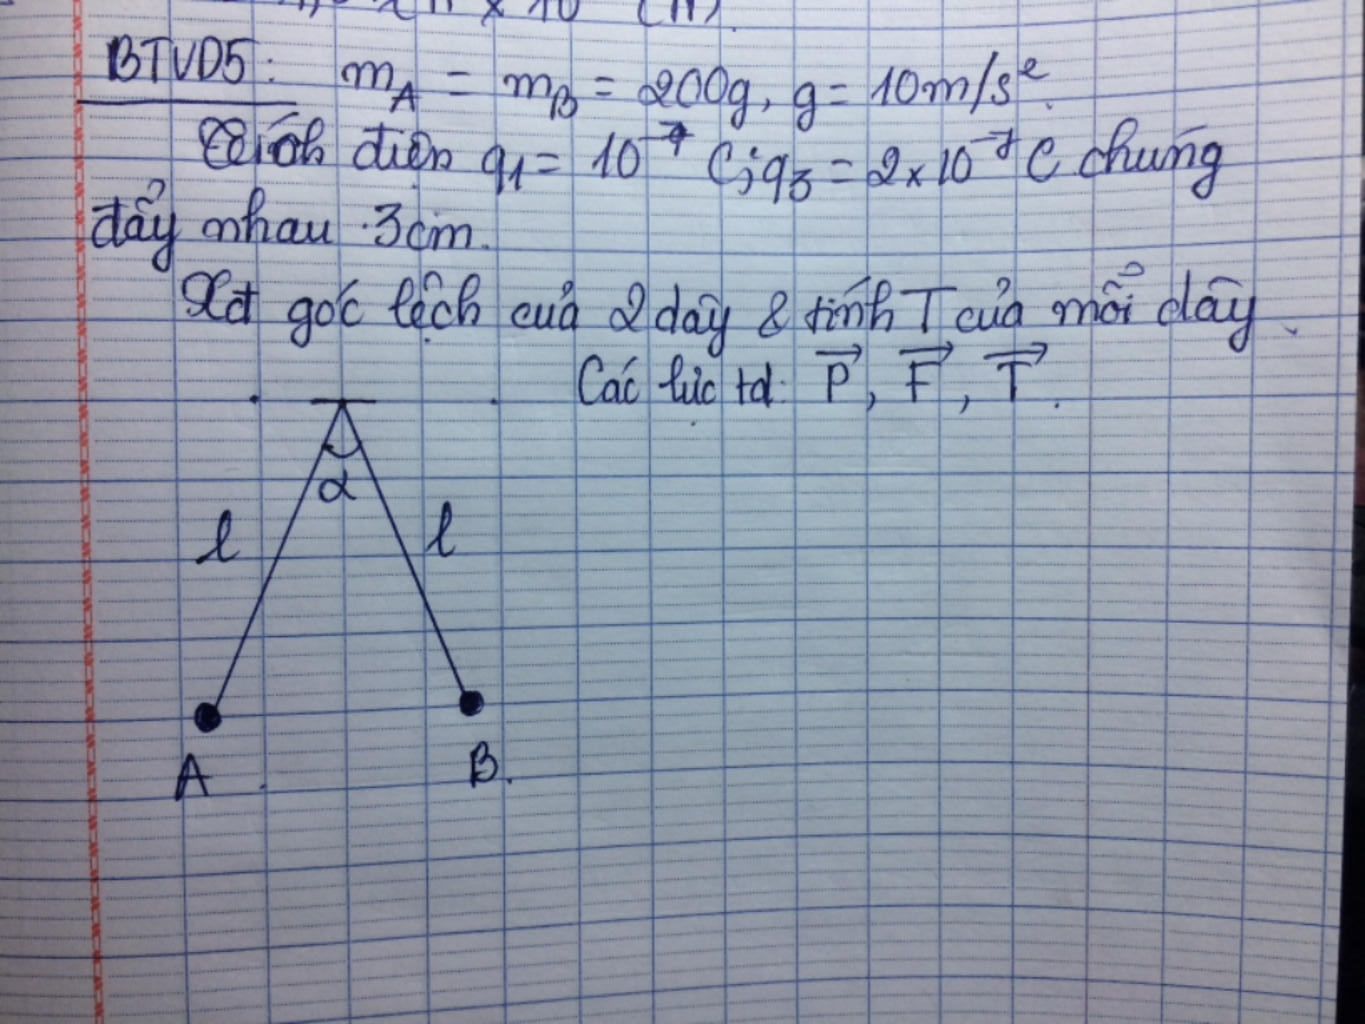 BTVD5: mA = mB = 200g, g = 10m/s²
Tích điện q1 = 10⁻⁷ C; q3 = 2x10⁻⁷ C chúng
đẩy nhau 3cm.
Xđ góc lệch của 2 dây & tính T của mỗi dây
Các lực td: P, F, T.
α
l l
A B.